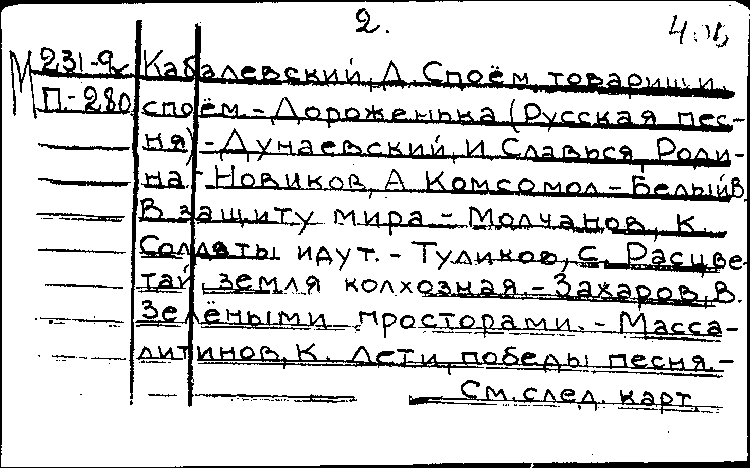 2.
231-9 Кабалевский, Д. Споём, товарищи,
П.-280 споём. - Дороженька (Русская пес-
ня) - Дунаевский, И. Славься, Роди-
на - Новиков, А Комсомол - Белый В.
В защиту мира - Молчанов, К.
Солдаты идут. - Туликов, С. Расцве-
тай, земля колхозная. - Захаров, В.
Зелёными просторами. - Масса-
литинов, К. Лети, победы песня. -
См. след. карт.